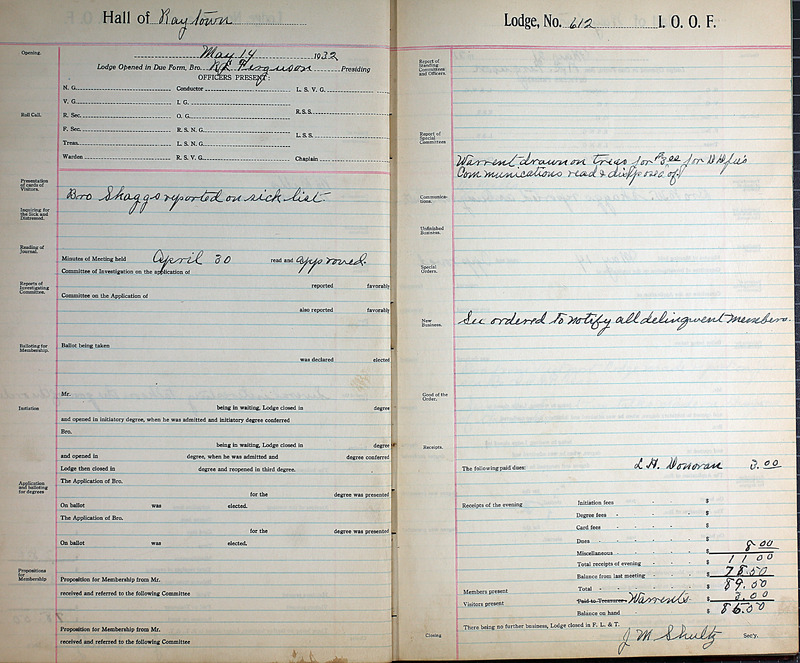 Hall of Raytown
May 14 1932
Lodge Opened in Due Form, Bro. Ferguson Presiding
OFFICERS PRESENT:
Opening.
Roll Call.
N. G. Conductor L. S. V. G.
V. G. I. G. R.S.S.
R. Sec. O. G.
F. Sec. R. S. N. G. L.S.S.
Treas. L. S. N. G.
Warden R. S. V. G. Chaplain
Presentation
of cards of
Visitors.
Bro Skaggs reported on sick list.
Inquiring for
the Sick and
Distressed.
Reading of
Journal.
Minutes of Meeting held April 30 read and approved.
Committee of Investigation on the application of
reported favorably
Reports of
Investigating
Committee.
Committee on the Application of
also reported favorably
Balloting for
Membership.
Ballot being taken
was declared elected
Mr.
Initiation
being in waiting, Lodge closed in degree
and opened in initiatory degree, when he was admitted and initiatory degree conferred
Bro.
being in waiting, Lodge closed in degree
and opened in degree, when he was admitted and degree conferred
Lodge then closed in degree and reopened in third degree.
Application
and balloting
for degrees
The Application of Bro.
for the degree was presented
On ballot was elected.
The Application of Bro.
for the degree was presented
On ballot was elected.
Propositions
for
Membership
Proposition for Membership from Mr.
received and referred to the following Committee
Proposition for Membership from Mr.
received and referred to the following Committee
Lodge, No. 612 I. O. O. F.
Report of
Standing
Committees
and Officers.
Report of
Special
Committees
Warrent drawn on treas for $3.00 for
Communications read & disposed of
Communica-
tions.
Unfinished
Business.
Special
Orders.
New
Business.
Sec ordered to notify all delinqvent members.
Good of the
Order.
Receipts.
The following paid dues: L H. Donovan 3.00
Receipts of the evening Initiation fees $
Degree fees $
Card fees $
Dues $
Miscellaneous $ 8.00
Total receipts of evening $ 11 00
Balance from last meeting $ 78.00
Members present Total $ 89.00
Visitors present Paid to Treasurer Warrents $ 3.00
Balance on hand $ 86.00
There being no further business, Lodge closed in F. L. & T.
Closing J M Shultz Sec'y.